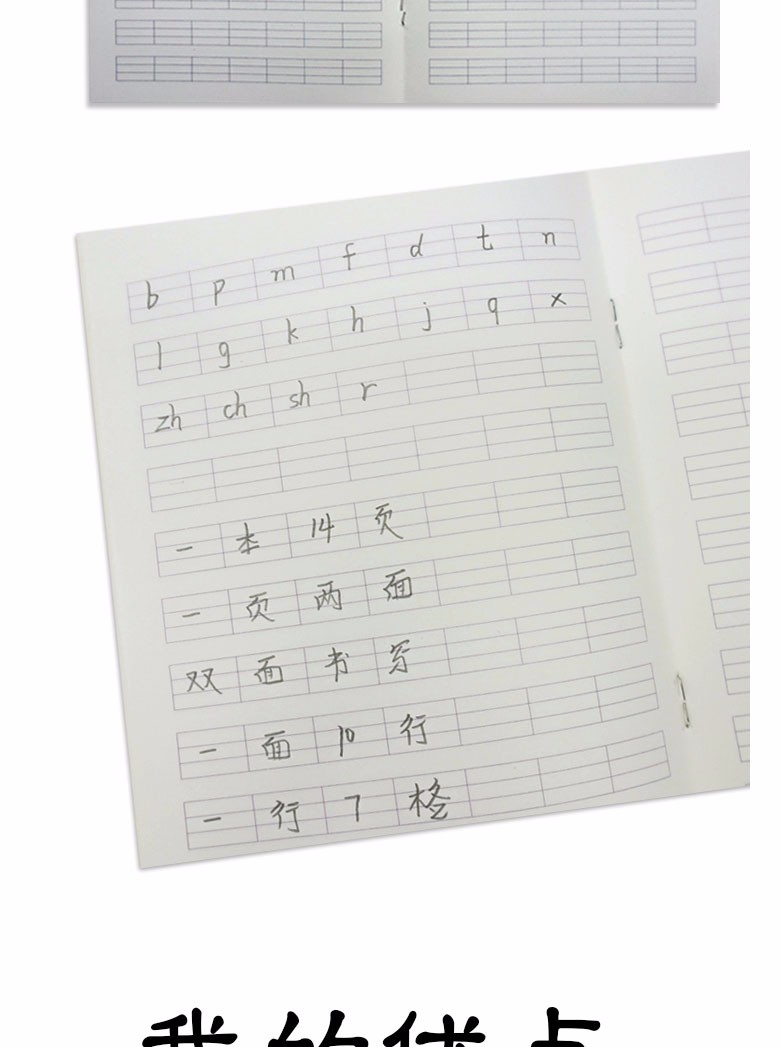 b p m f d t n
l g k h j q x
zh ch sh r
一本14页
一页两面
双面书写
一面10行
一行7格
我的优点